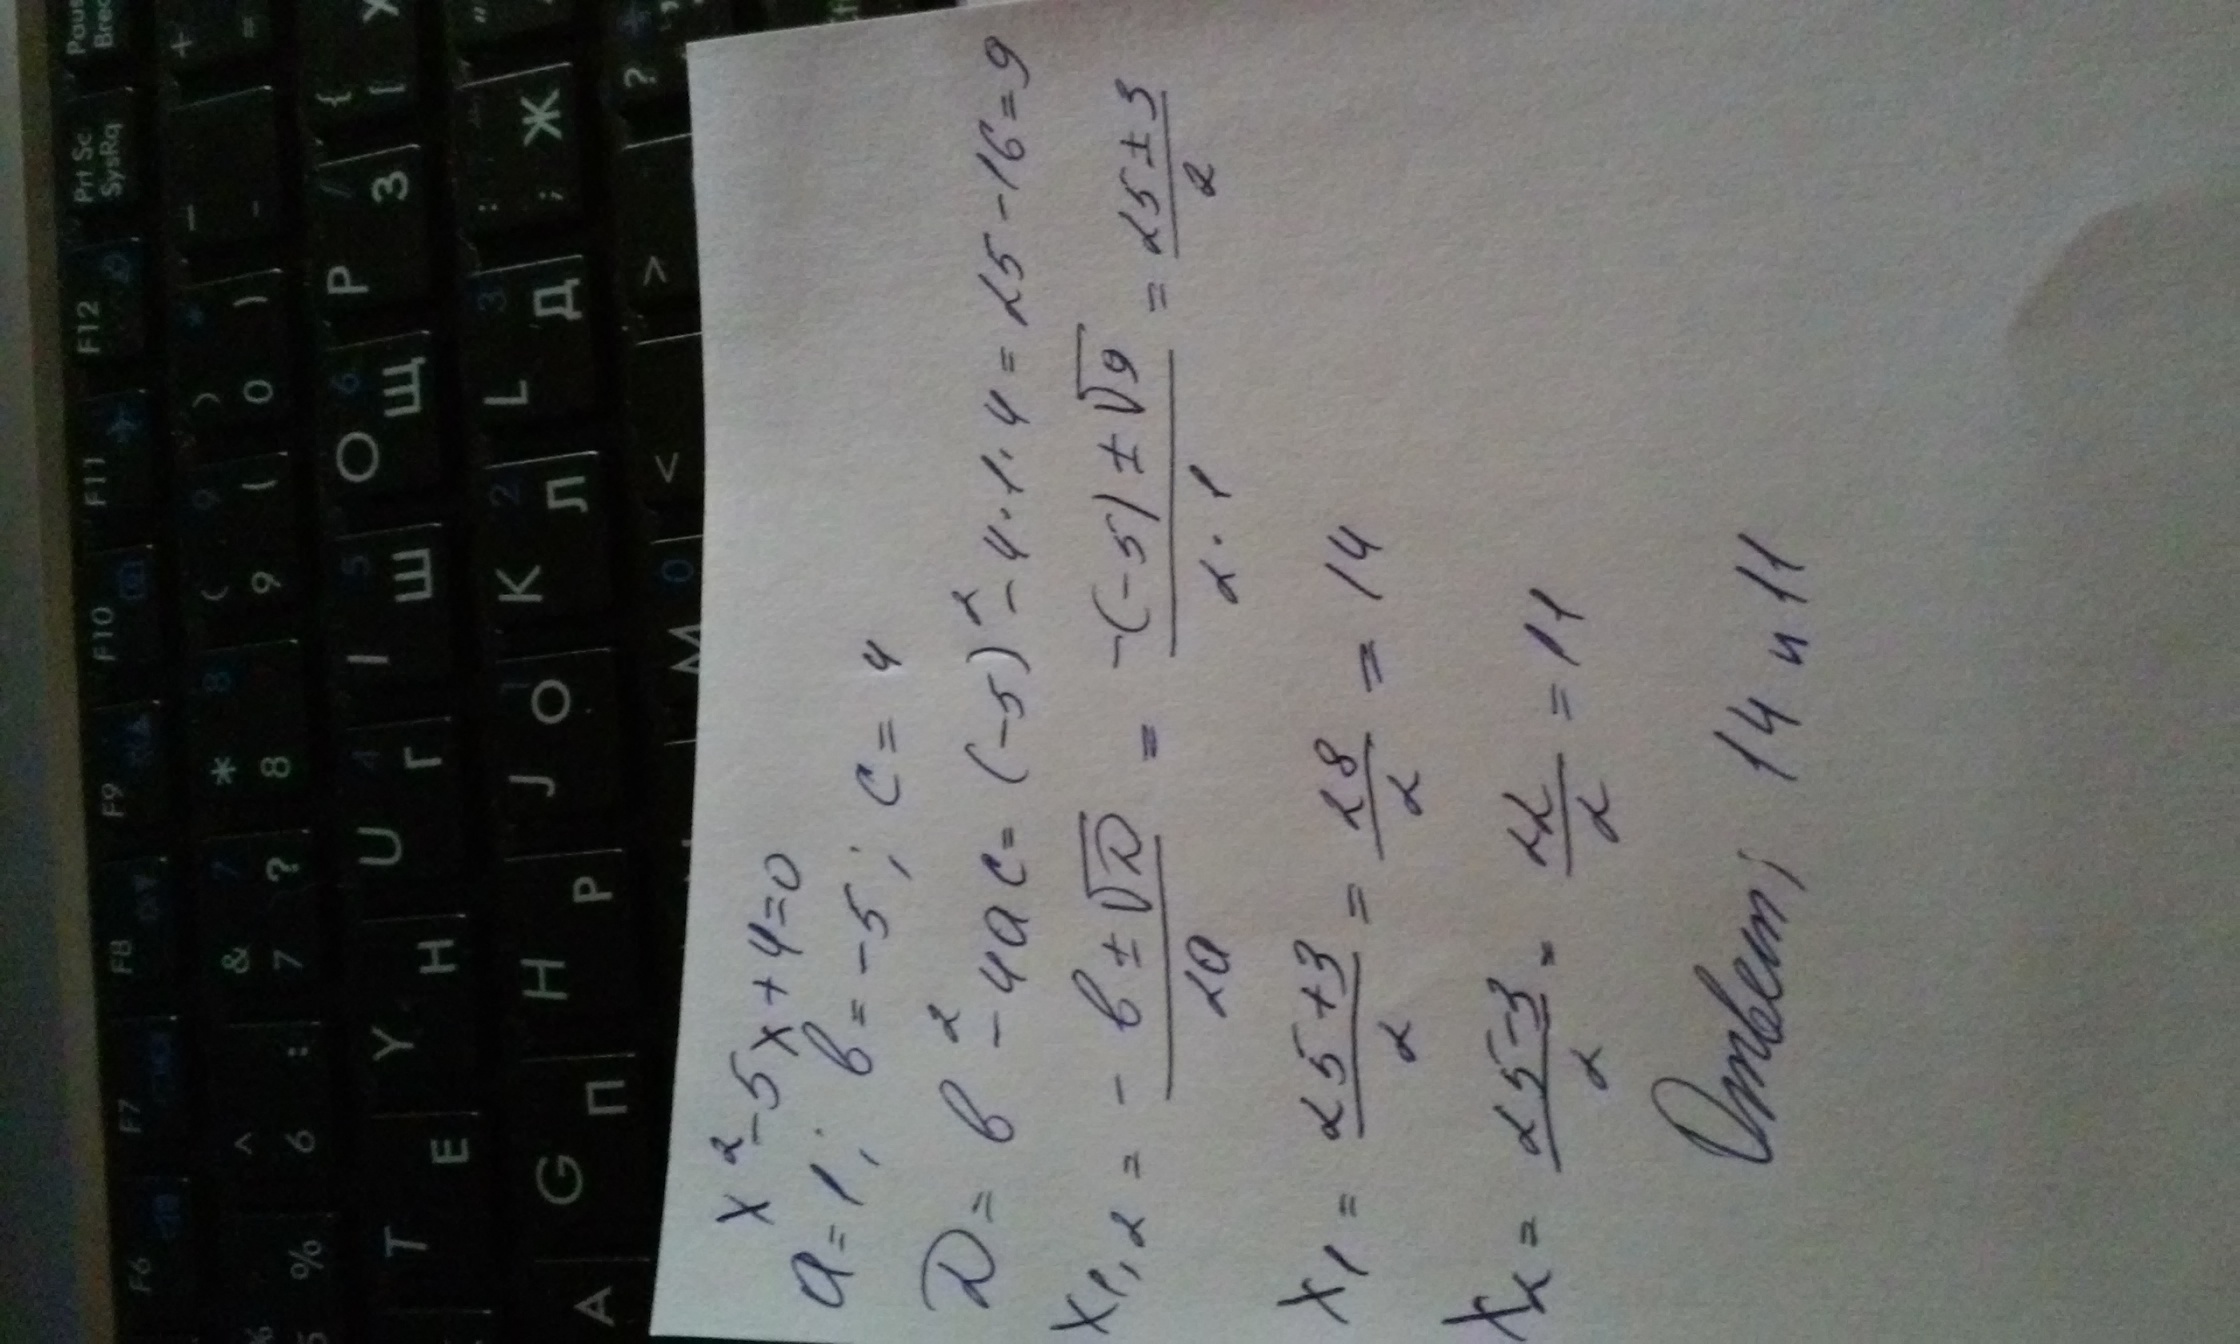 x² - 5x + 4 = 0
a = 1; b = -5; c = 4
D = b² - 4ac = (-5)² - 4·1·4 = 25 - 16 = 9
x₁,₂ = (-b ± √D)/2a = (-(-5) ± √9)/2·1 = (25 ± 3)/2
x₁ = (25 + 3)/2 = 28/2 = 14
x₂ = (25 - 3)/2 = 22/2 = 11
Ответ; 14 и 11
F6 F7 F8 F9 F10 F11 F12 Prt Sc SysRq
% ^ 6 : & 7 ? * 8 ( 9 ( ) 0 ) _ - + =
T E Y Н U Г I Ш O Щ P З { [ Х
А G П H Р J О K Л L Д : ; Ж
M < > ?